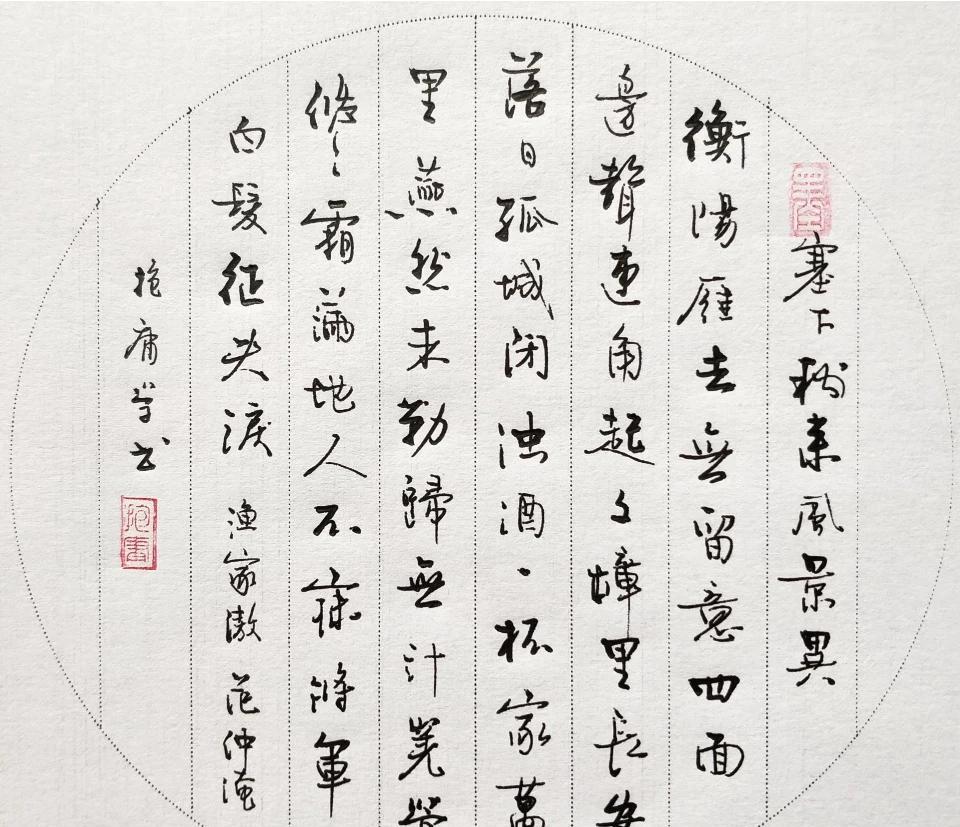 塞下秋来風景異
衡陽雁去無留意四面
邊聲連角起嶂里長
落日孤城闭浊酒一杯家萬
里燕然未勒歸無計羌
悠〻霜滿地人不寐將軍
白髮征夫淚 渔家傲 范仲淹
抱庸学书